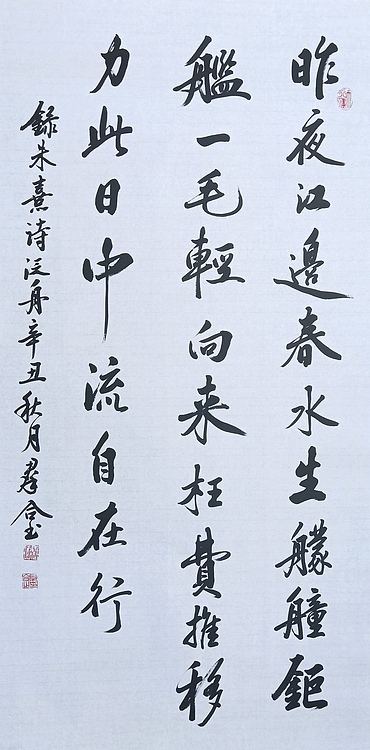 昨夜江邊春水生艨艟鉅
艦一毛輕向来枉費推移
力此日中流自在行
録朱熹詩泛舟辛丑秋月羣